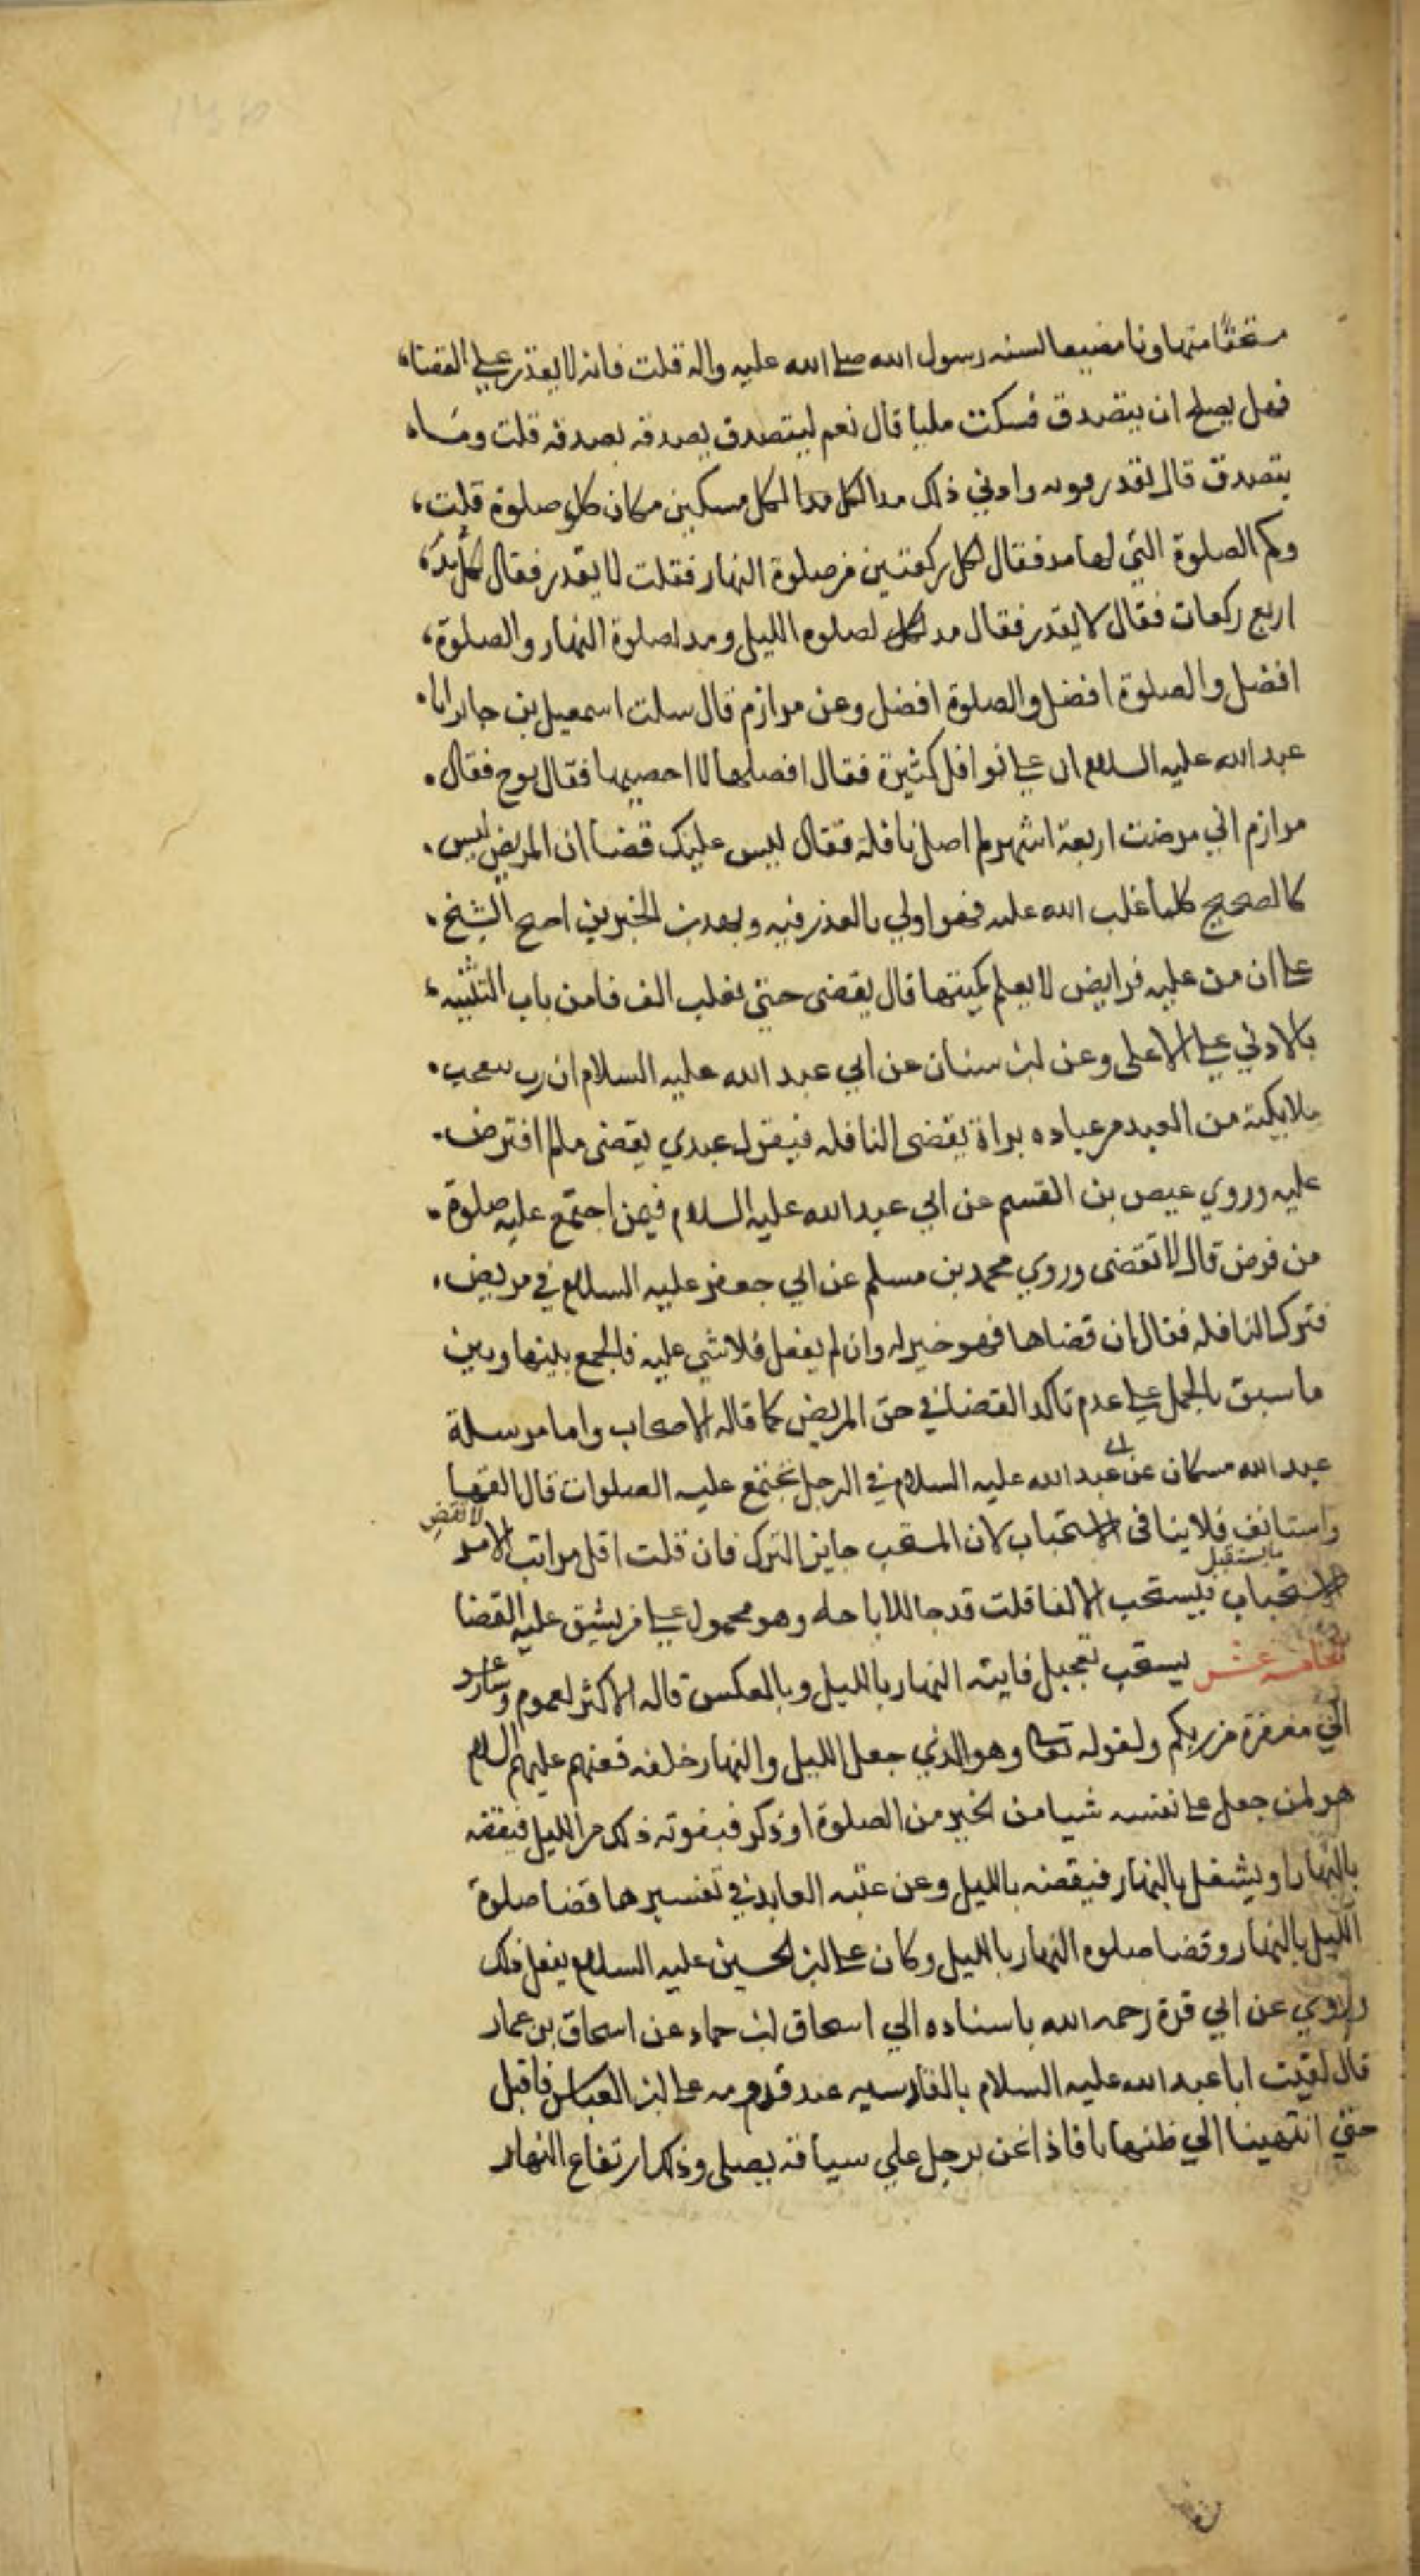 مستخفا متهاونا مضيعا لسنه رسول الله صلي الله عليه واله قلت فانه لا يقدر علي القضاء
فهل يصلح ان يتصدق فسكت مليا قال نعم ليتصدق بصدقه بصدقه قلت وما
يتصدق قال بقدر قوته وادني ذلك مد لكل مد الكل مسكين مكان كل صلوة قلت
وكم الصلوة التي لها مد فقال لكل ركعتين من صلوة النهار فقلت لا يقدر فقال لكل مد
اربع ركعات فقال لا يقدر فقال مد لكل لصلوه الليل ومد لصلوة النهار والصلوة
افضل والصلوة افضل والصلوة افضل وعن مرازم قال سلت اسمعيل بن جابر ابا
عبد الله عليه السلام ان علي نوافل كثيرة فقال اقضها لا احصيها فقال توخ فقال
مرازم اني مرضت اربعة اشهر لم اصل نافلة فقال ليس عليك قضا ان المريض ليس
كالصحيح كلما غلب الله عليه فهو اولي بالعذر فيه وبهدين الخبرين احتج الشيخ
علي ان من عليه فرايض لا يعلم كميتها قال يقضى حتي يغلب الف فا من باب التنبيه
بالادني علي الاعلى وعن ابن سنان عن ابي عبد الله عليه السلام ان رب يعجب
ملايكته من العبد من عباده يراة يقضى النافله فيقول عبدي يقضى ما لم افترض
عليه وروي عيص بن القسم عن ابي عبد الله عليه السلام فيمن اجتمع عليه صلوة
من فرض قال لا تقضى وروي محمد بن مسلم عن ابي جعفر عليه السلام في مريض
فترك النافله فقال ان قضاها فهو خير له وان لم يفعل فلا شي عليه فالجمع بينها وبين
ما سبق بالحمل علي عدم تاكد القضا في حق المريض كما قاله الاصحاب واما مرسلة
عبد الله مسكان عن ابي عبد الله عليه السلام في الرجل تجتمع عليه الصلوات قال القها
واستانف فلا ينافى الاستحباب لان المستحب جايز الترك فان قلت اقل مراتب الامر لا تقض
الاستحباب فيستحب الالقا قلت قد جا للاباحه وهو محمول علي من يشق عليه القضا
ما يستقبل
الخامسه عشر يستحب تعجيل فايته النهار بالليل وبالعكس قاله الاكثر لعموم وسارعو
الي مغفرة من ربكم ولقوله تعالى وهو الذي جعل الليل والنهار خلفه فعنهم عليهم السلام
هو لمن جعل علي نفسه شيا من الخير من الصلوة او ذكر فيفوته ذلك من الليل فيقضه
بالنهار او يشغل بالنهار فيقضه بالليل وعن عتبه العابد في تفسيرها قضا صلوة
الليل بالنهار وقضا صلوه النهار بالليل وكان علي ابن الحسين عليه السلام يفعل ذلك
وروي عن ابي قرة رحمه الله باسناده الي اسحاق ابن حماد عن اسحاق بن عمار
قال لقيت ابا عبد الله عليه السلام بالقادسيه عند قدومه علي ابن العباس فاقبل
حتي انتهينا الي طنهابا فاذا نحن برجل علي سياقه يصلى وذلك ارتفاع النهار